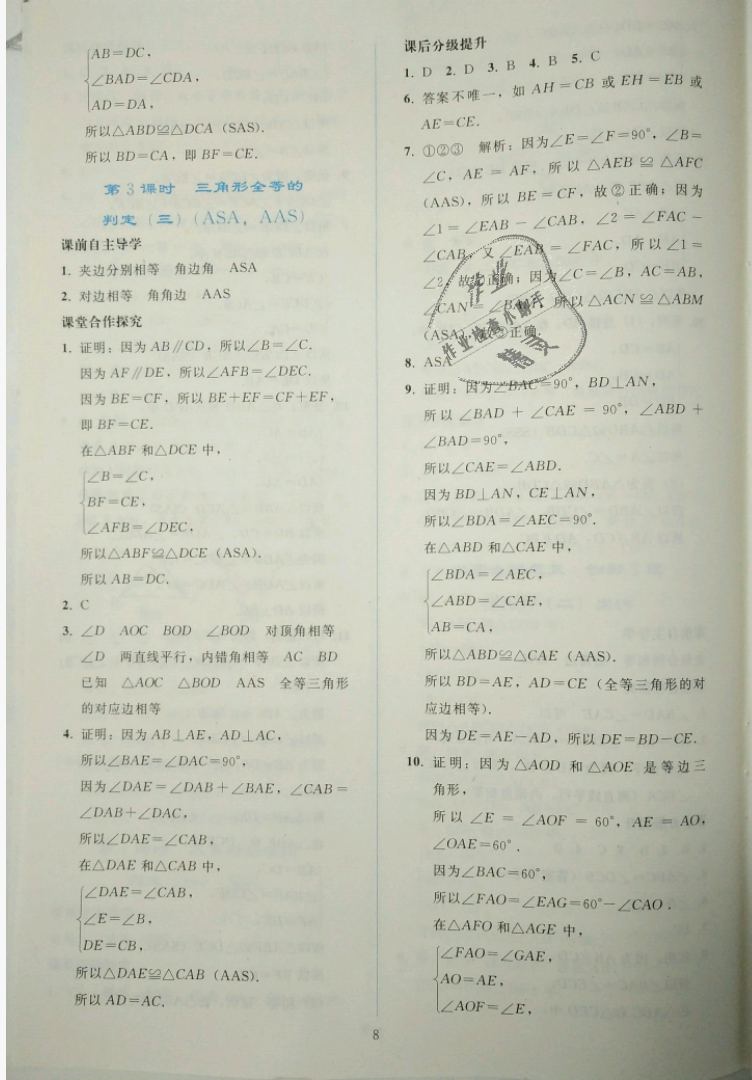 AB=DC,
∠BAD=∠CDA,
AD=DA,
所以△ABD≌△DCA (SAS).
所以 BD=CA, 即 BF=CE.
第 3 课时 三角形全等的
判定 (三) (ASA, AAS)
课前自主导学
1. 夹边分别相等 角边角 ASA
2. 对边相等 角角边 AAS
课堂合作探究
1. 证明: 因为 AB∥CD, 所以∠B=∠C.
因为 AF∥DE, 所以∠AFB=∠DEC.
因为 BE=CF, 所以 BE+EF=CF+EF,
即 BF=CE.
在△ABF 和△DCE 中,
∠B=∠C,
BF=CE,
∠AFB=∠DEC,
所以△ABF≌△DCE (ASA).
所以 AB=DC.
2. C
3. ∠D AOC BOD ∠BOD 对顶角相等
∠D 两直线平行, 内错角相等 AC BD
已知 △AOC △BOD AAS 全等三角形
的对应边相等
4. 证明: 因为 AB⊥AE, AD⊥AC,
所以∠BAE=∠DAC=90°,
因为∠DAE=∠DAB+∠BAE, ∠CAB=
∠DAB+∠DAC,
所以∠DAE=∠CAB,
在△DAE 和△CAB 中,
∠DAE=∠CAB,
∠E=∠B,
DE=CB,
所以△DAE≌△CAB (AAS).
所以 AD=AC.
课后分级提升
1. D 2. D 3. B 4. B 5. C
6. 答案不唯一, 如 AH=CB 或 EH=EB 或
AE=CE.
7. ①②③ 解析: 因为∠E=∠F=90°, ∠B=
∠C, AE=AF, 所以△AEB≌△AFC
(AAS), 所以 BE=CF, 故②正确; 因为
∠1=∠EAB-∠CAB, ∠2=∠FAC-
∠CAB, 又∠EAB=∠FAC, 所以∠1=
∠2, 故①正确; 因为∠C=∠B, AC=AB,
∠CAN=∠BAM, 所以△ACN≌△ABM
(ASA), 故③正确.
作业
作业检查小助手
精灵
8. ASA
9. 证明: 因为∠BAC=90°, BD⊥AN,
所以∠BAD+∠CAE=90°, ∠ABD+
∠BAD=90°,
所以∠CAE=∠ABD.
因为 BD⊥AN, CE⊥AN,
所以∠BDA=∠AEC=90°.
在△ABD 和△CAE 中,
∠BDA=∠AEC,
∠ABD=∠CAE,
AB=CA,
所以△ABD≌△CAE (AAS).
所以 BD=AE, AD=CE (全等三角形的对
应边相等).
因为 DE=AE-AD, 所以 DE=BD-CE.
10. 证明: 因为△AOD 和△AOE 是等边三
角形,
所以∠E=∠AOF=60°, AE=AO,
∠OAE=60°.
因为∠BAC=60°,
所以∠FAO=∠EAG=60°-∠CAO.
在△AFO 和△AGE 中,
∠FAO=∠GAE,
AO=AE,
∠AOF=∠E,
8